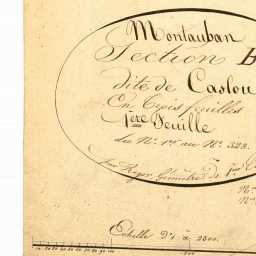 Montauban
Section B
dite de Caslou
En trois feuilles
1ère Feuille
du N.° 1er au N.° 322.
Par Roger, Géomètre de 1ère
N.°
N.°
Echelle d' 1 à 2500.